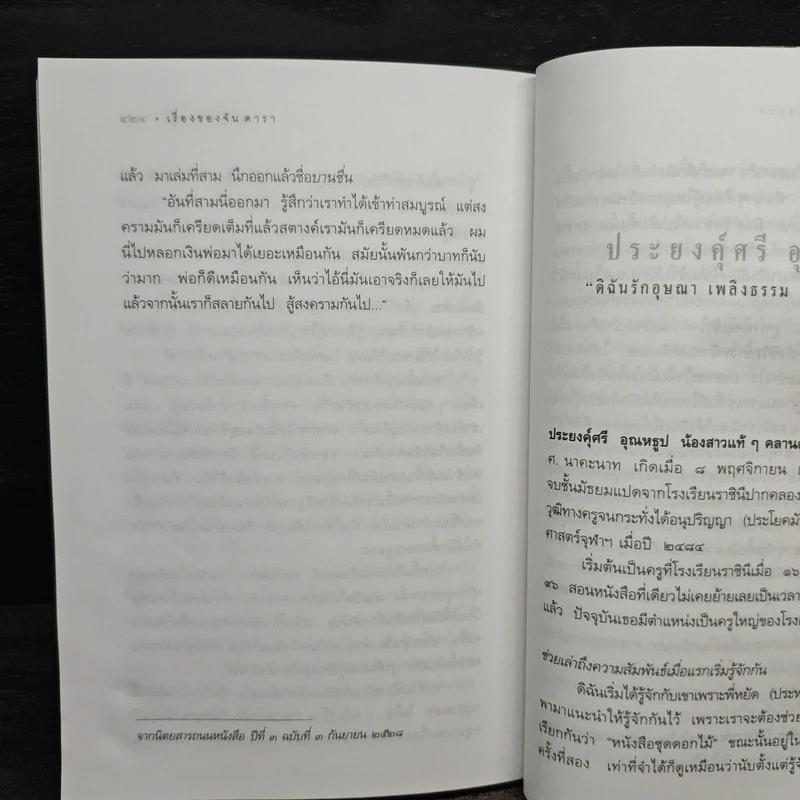 ๔๒๔ • เรื่องของจัน ดารา
แล้ว มาเล่มที่สาม นึกออกแล้วชื่อบานชื่น
"อันที่สามนี่ออกมา รู้สึกว่าเราทำได้เข้าท่าสมบูรณ์ แต่สง
ครามมันก็เครียดเต็มที่แล้วสตางค์เรามันก็เครียดหมดแล้ว ผม
นี่ไปหลอกเงินพ่อมาได้เยอะเหมือนกัน สมัยนั้นพันกว่าบาทก็นับ
ว่ามาก พ่อก็ดีเหมือนกัน เห็นว่าไอ้นี่มันเอาจริงก็เลยให้มันไป
แล้วจากนั้นเราก็สลายกันไป สู้สงครามกันไป..."
จากนิตยสารถนนหนังสือ ปีที่ ๓ ฉบับที่ ๓ กันยายน ๒๕๒๘
ประยงค์ุศรี อุ
"ดิฉันรักอุษณา เพลิงธรรม
ประยงค์ุศรี อุณหธูป น้องสาวแท้ ๆ คลานต
ศ. นาคะนาท เกิดเมื่อ ๘ พฤศจิกายน
จบชั้นมัธยมแปดจากโรงเรียนราชินีปากคลอง
วุฒิทางครูจนกระทั่งได้อนุปริญญา (ประโยคมั
ศาสตร์จุฬาฯ เมื่อปี ๒๔๘๔
เริ่มต้นเป็นครูที่โรงเรียนราชินีเมื่อ ๑๖
๙๖ สอนหนังสือที่เดียวไม่เคยย้ายเลยเป็นเวลา
แล้ว ปัจจุบันเธอมีตำแหน่งเป็นครูใหญ่ของโรงเ
ช่วยเล่าถึงความสัมพันธ์เมื่อแรกเริ่มรู้จักกัน
ดิฉันเริ่มได้รู้จักกับเขาเพราะพี่หยัด (ประห
พามาแนะนำให้รู้จักกันไว้ เพราะเราจะต้องช่วย
เรียกกันว่า "หนังสือชุดดอกไม้" ขณะนั้นอยู่ใน
ครั้งที่สอง เท่าที่จำได้ก็ดูเหมือนว่านับตั้งแต่รู้จั